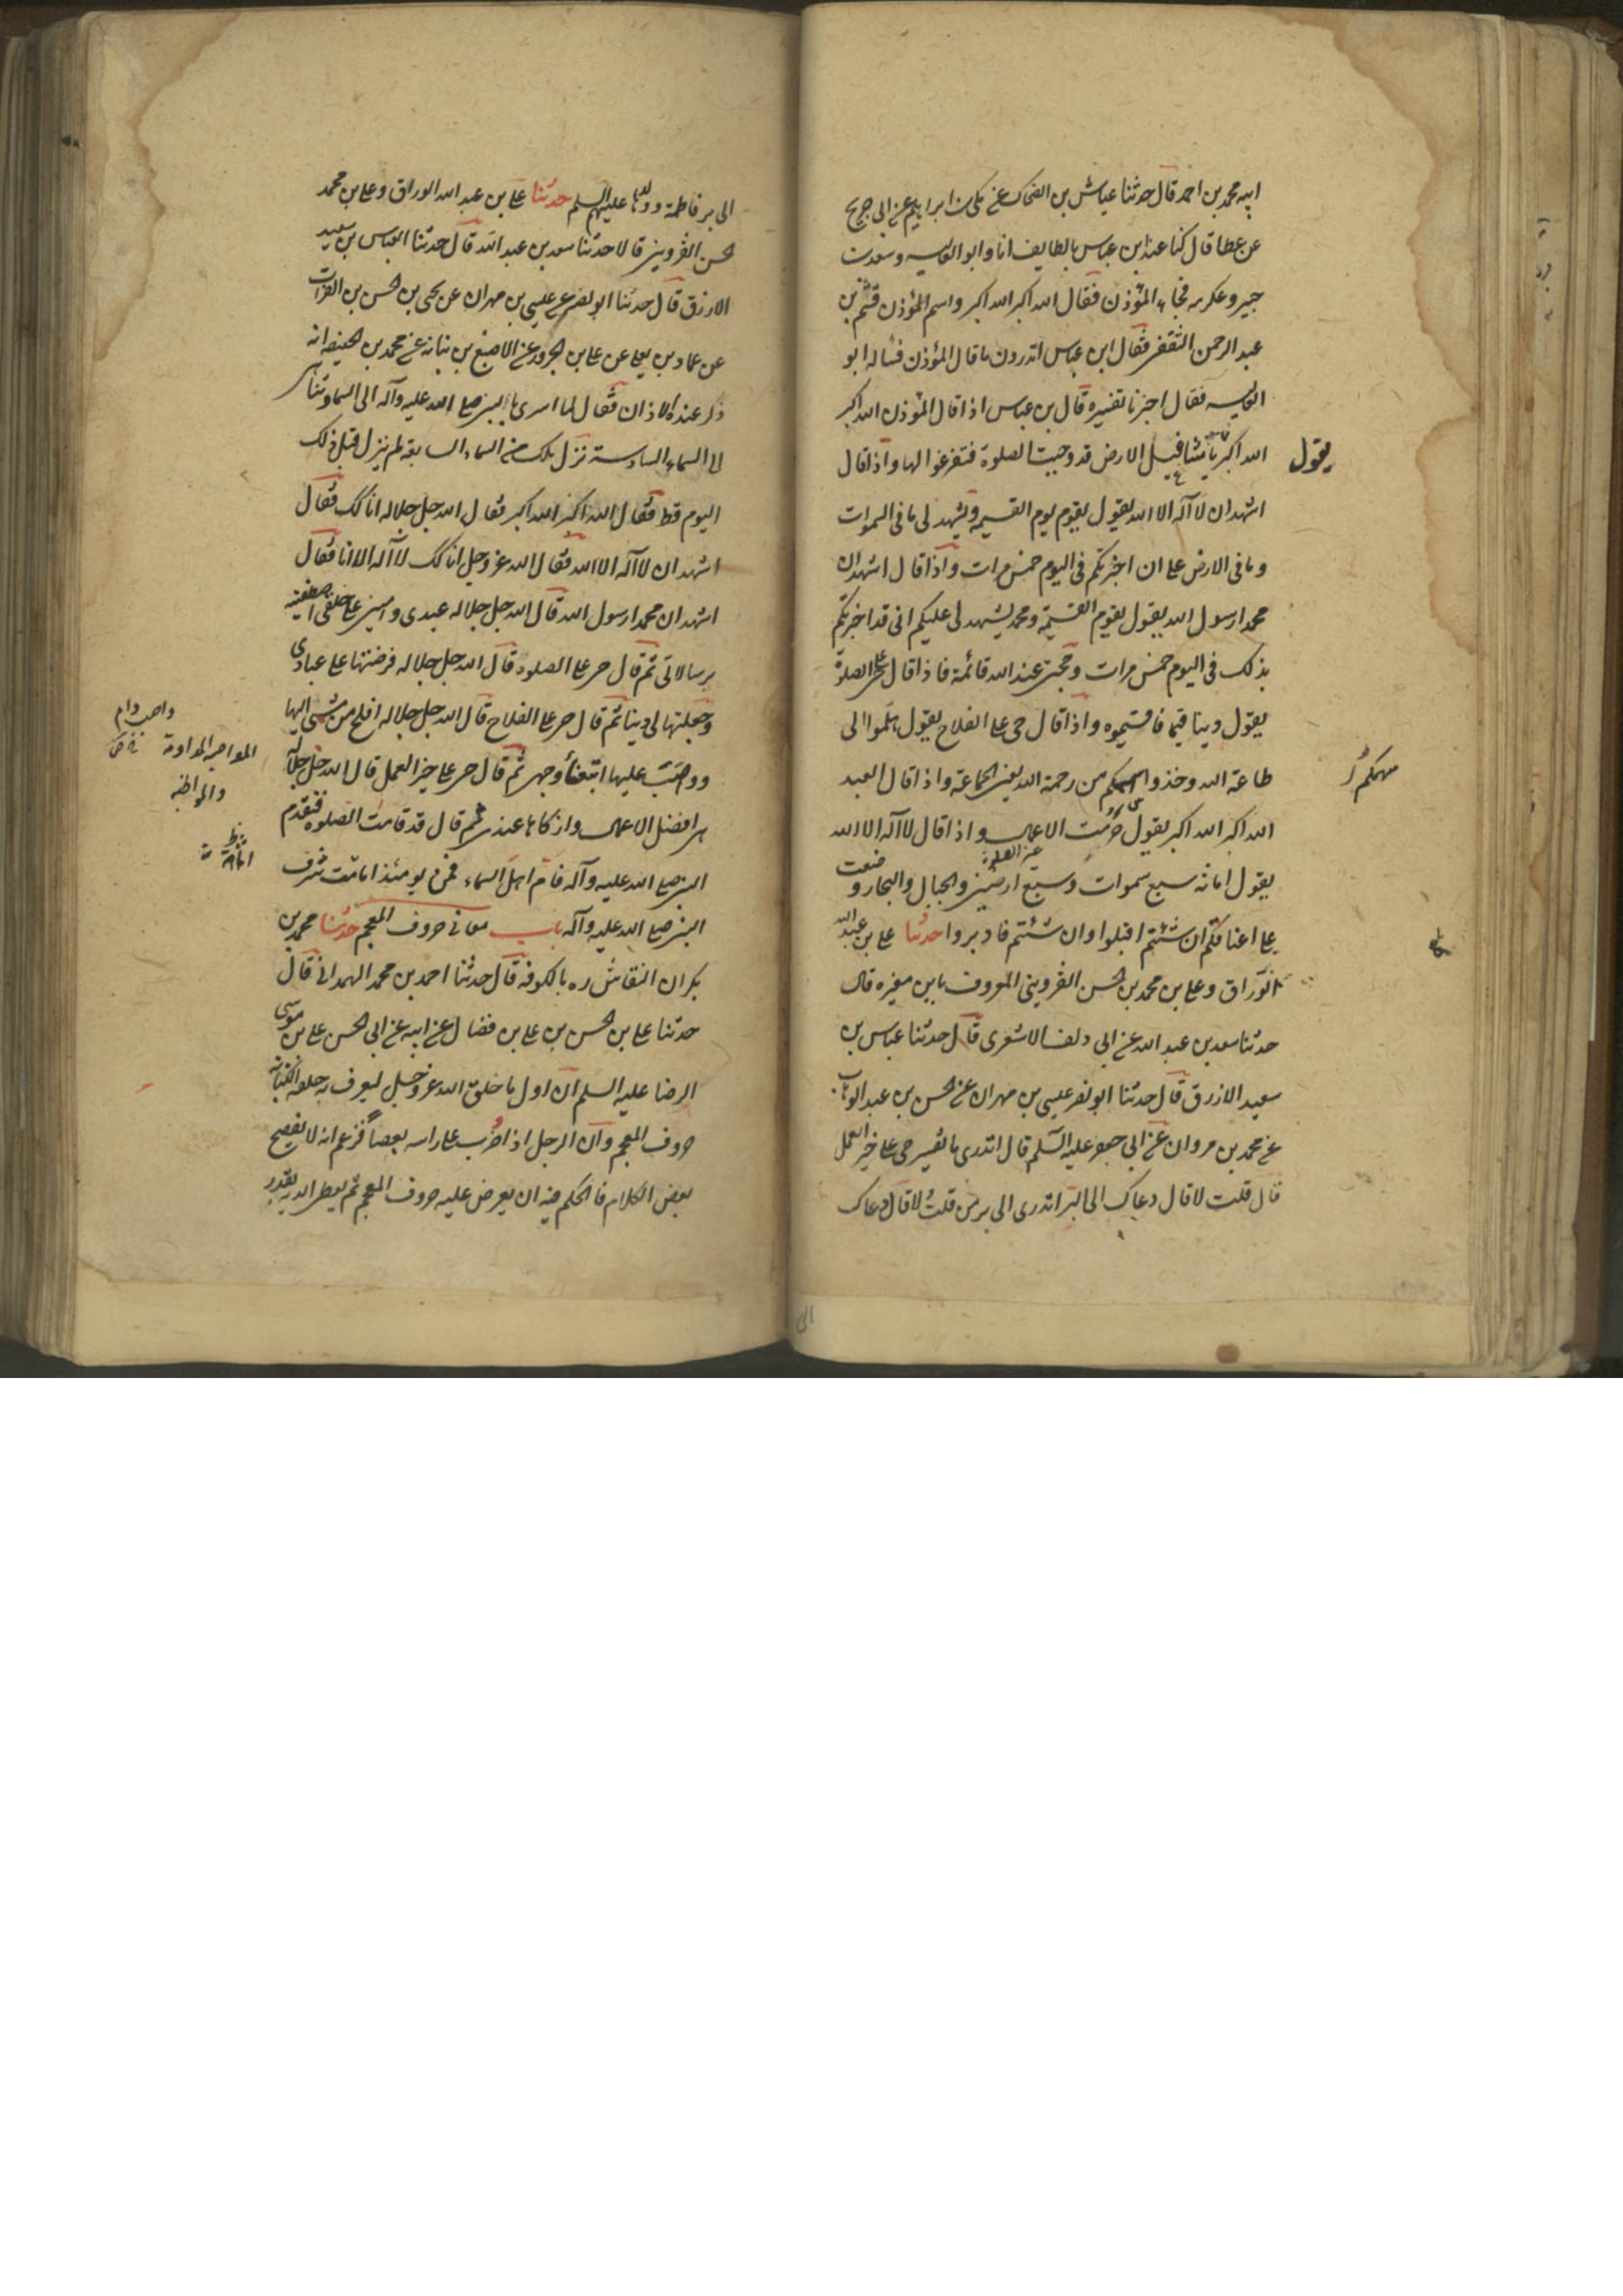 ابيه محمد بن احمد قال حدثنا عياش بن الضحاك عن مكى بن ابراهيم عن ابى جريح
عن عطا قال كنا عند ابن عباس بالطايف انا وابو العاليه وسعيد بن
جبير وعكرمه فجاء المؤذن فقال الله اكبر الله اكبر واسم المؤذن قثم بن
عبد الرحمن الثقفى فقال ابن عباس اتدرون ما قال المؤذن فساله ابو
العاليه فقال اخبرنا بتفسيره قال بن عباس اذا قال المؤذن الله اكبر
يقول
الله اكبر يا مشاغيل الارض قد وجبت الصلوة فتفرغوا لها واذا قال
اشهد ان لا اله الا الله يقول يقوم يوم القيمة ويشهد لى ما فى السموات
وما فى الارض على ان اخبرتكم فى اليوم خمس مرات واذا قال اشهد ان
محمدا رسول الله يقول يقوم القيمة ومحمد يشهد لى عليكم انى قد اخبرتكم
بذلك فى اليوم خمس مرات وحجتى عند الله قائمة فاذا قال حى على الصلوة
يقول دينا قيما فاقيموه واذا قال حى على الفلاح يقول هلموا الى
طاعة الله وخذوا سهمكم من رحمة الله يعنى الجماعة واذا قال العبد
سهمكم
الله اكبر الله اكبر يقول حرمت الاعمال واذا قال لا اله الا الله
يقول امانة سبع سموات وسبع ارضين والجبال والبحار وضعت
على اعناقكم ان شئتم اقبلوا وان شئتم فادبروا حدثنا على بن عبد الله
الوراق وعلى بن محمد بن الحسن القزوينى المعروف بابن مغيره قال
حدثنا سعد بن عبد الله عن ابى دلف الاشعرى قال حدثنا عباس بن
سعيد الازرق قال حدثنا ابو نصر عيسى بن مهران عن الحسن بن عبد الوهاب
عن محمد بن مروان عن ابى جعفر عليه السلم قال اتدرى ما تفسير حى على خير العمل
قال قلت لا قال دعاك الى البر اتدرى الى بر من قلت لا قال دعاك
الى بر فاطمة وولدها عليهم السلم حدثنا على بن عبد الله الوراق وعلى بن محمد
الحسن القزوينى قالا حدثنا سعد بن عبد الله قال حدثنا العباس بن سعيد
الازرق قال حدثنا ابو نصر عن عيسى بن مهران عن يحيى بن الحسن بن الفرات
عن حماد بن يعلى عن على بن الحزور عن الاصبغ بن نباته عن محمد بن الحنفيه انه
ذكر عنده الاذان فقال لما اسرى بالنبى صلى الله عليه وآله الى السماء وتناهى
الى السماء السادسة نزل ملك من السماء السابعة لم ينزل قبل ذلك
اليوم قط فقال الله اكبر الله اكبر فقال الله جل جلاله انا كذلك فقال
اشهد ان لا اله الا الله فقال الله عز وجل انا كذلك لا اله الا انا فقال
اشهد ان محمدا رسول الله قال الله جل جلاله عبدى وامينى على خلقى اصطفيته
برسالاتى ثم قال حى على الصلوة قال الله جل جلاله فرضتها على عبادى
وجعلتها لى دينا ثم قال حى على الفلاح قال الله جل جلاله افلح من مشى اليها
وواظب عليها ابتغاء وجهى ثم قال حى على خير العمل قال الله جل جلاله
هى افضل الاعمال وازكاها عندى ثم قال قد قامت الصلوة فتقدم
النبى صلى الله عليه وآله فام اهل السماء فمن يومئذ اتمت شرف
النبى صلى الله عليه وآله باب معانى حروف المعجم حدثنا محمد بن
بكران النقاش ره بالكوفة قال حدثنا احمد بن محمد الهمدانى قال
حدثنا على بن الحسن بن على بن فضال عن ابيه عن ابى الحسن على بن موسى
الرضا عليه السلم ان اول ما خلق الله عز وجل ليعرف به خلقه الكتابة
حروف المعجم وان الرجل اذا ضرب على راسه بعصا فزعم انه لا يفصح
بعض الكلام فالحكم فيه ان يعرض عليه حروف المعجم ثم يعطى الديه بقدر
المواظبة المداومة